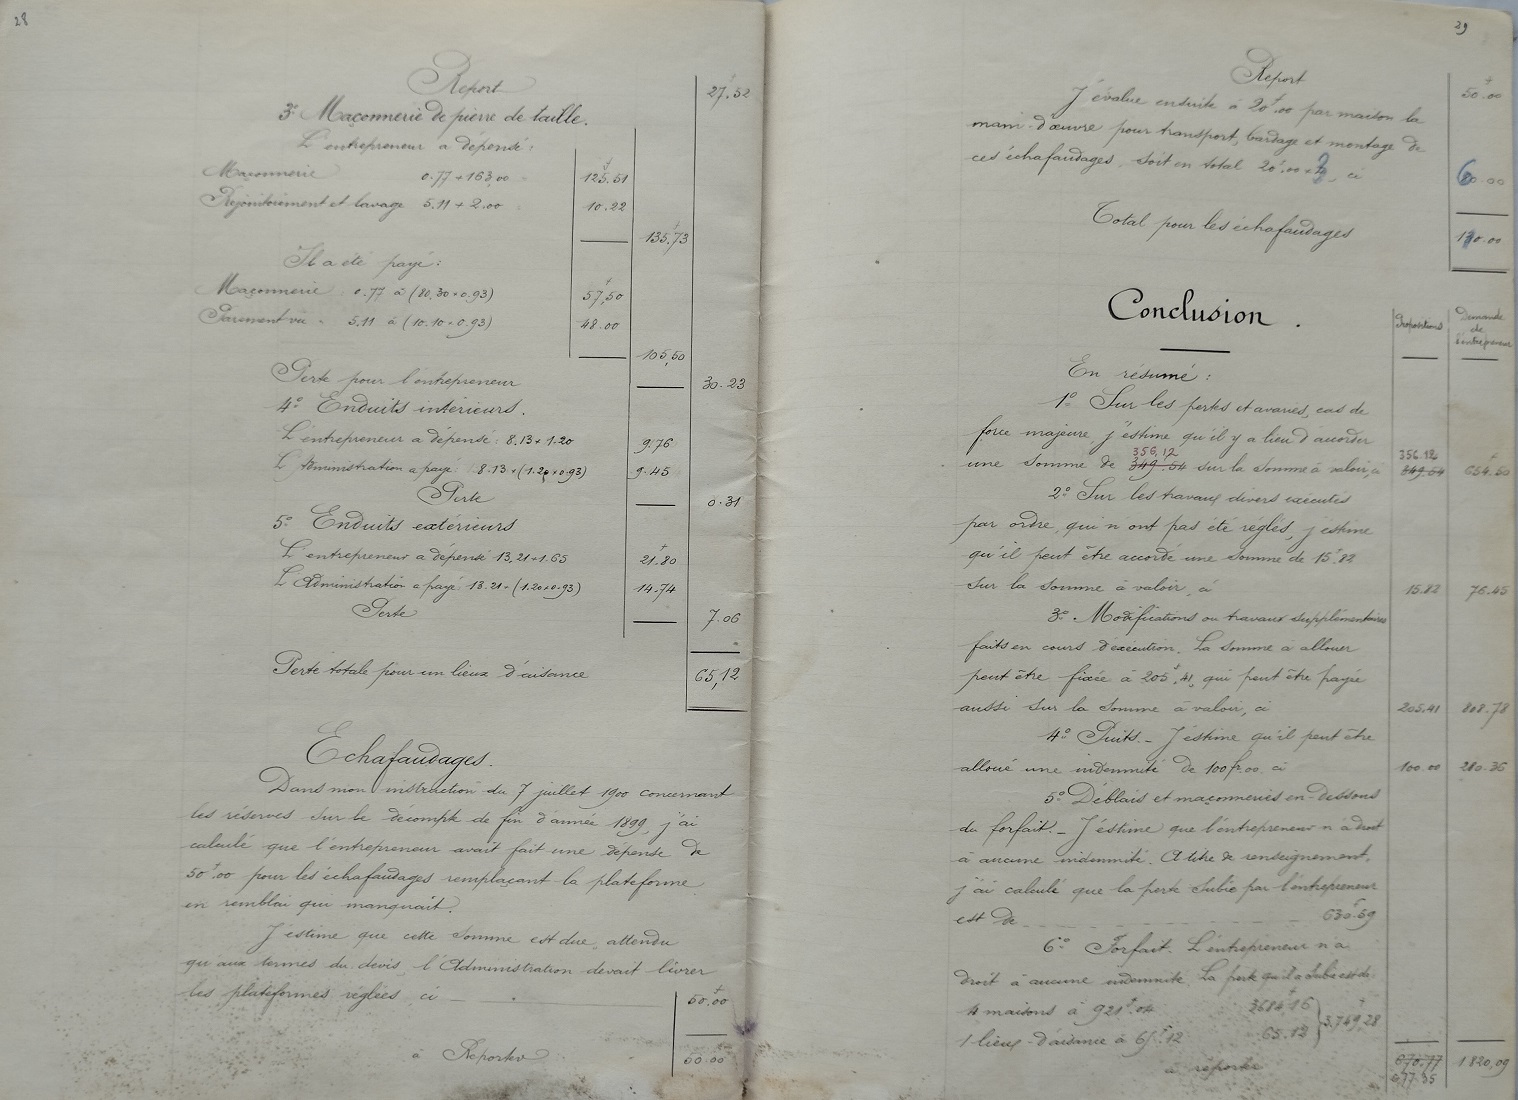 28
Report
27.52
3º Maçonnerie de pierre de taille.
L'entrepreneur a dépensé:
Maçonnerie 0.77 × 163,00 125.51
Rejointoiement et lavage 5.11 × 2.00 10.22
135.73
Il a été payé:
Maçonnerie 0.77 à (80,30×0.93) 57,50
Parement vu 5.11 à (10.10×0.93) 48.00
105,50
Perte pour l'entrepreneur 30.23
4º Enduits intérieurs.
L'entrepreneur a dépensé: 8.13 × 1.20 9.76
L'Administration a payé: 8.13 × (1.20×0.93) 9.45
Perte 0.31
5º Enduits extérieurs
L'entrepreneur a dépensé 13,21×1.65 21.80
L'Administration a payé 13.21 × (1.20×0.93) 14.74
Perte 7.06
Perte totale pour un lieux d'aisance 65,12
Echafaudages.
Dans mon instruction du 7 juillet 1900 concernant
les réserves sur le décompte de fin d'année 1899, j'ai
calculé que l'entrepreneur avait fait une dépense de
50f.00 pour les échafaudages remplaçant la plateforme
en remblai qui manquait.
J'estime que cette somme est due, attendu
qu'aux termes du devis, l'Administration devait livrer
les plateformes réglées, ci 50.00
à Reporter 50.00
29
Report 50.00
J'évalue ensuite à 20f.00 par maison la
main-d'œuvre pour transport, bardage et montage de
ces échafaudages, soit en total 20f.00 × 3, ci 60.00
Total pour les échafaudages 110.00
Conclusion.
Propositions
Demande de l'entrepreneur
En résumé:
1º Sur les pertes et avaries, cas de
force majeure, j'estime qu'il y a lieu d'accorder
356,12 356.12
une somme de 349.54 sur la somme à valoir, ci 349.54 654.50
2º Sur les travaux divers exécutés
par ordre, qui n'ont pas été réglés, j'estime
qu'il peut être accordé une somme de 15f.82
sur la somme à valoir, ci 15.82 76.45
3º Modifications ou travaux supplémentaires
faits en cours d'exécution. La somme à allouer
peut être fixée à 205f,41, qui peut être payée
aussi sur la somme à valoir, ci 205.41 808.78
4º Puits. _ J'estime qu'il peut être
alloué une indemnité de 100fr.00 ci 100.00 280.36
5º Déblais et maçonneries en-dessous
du forfait. _ J'estime que l'entrepreneur n'a droit
à aucune indemnité. A titre de renseignement,
j'ai calculé que la perte subie par l'entrepreneur
est de 630f.59
6º Forfait. L'entrepreneur n'a
droit à aucune indemnité. La perte qu'il a subie est de
4 maisons à 921f.04 3684.16
1 lieux-d'aisance à 65f.12 65.12
3,749,28
à reporter 670.77 1820,09
677.35